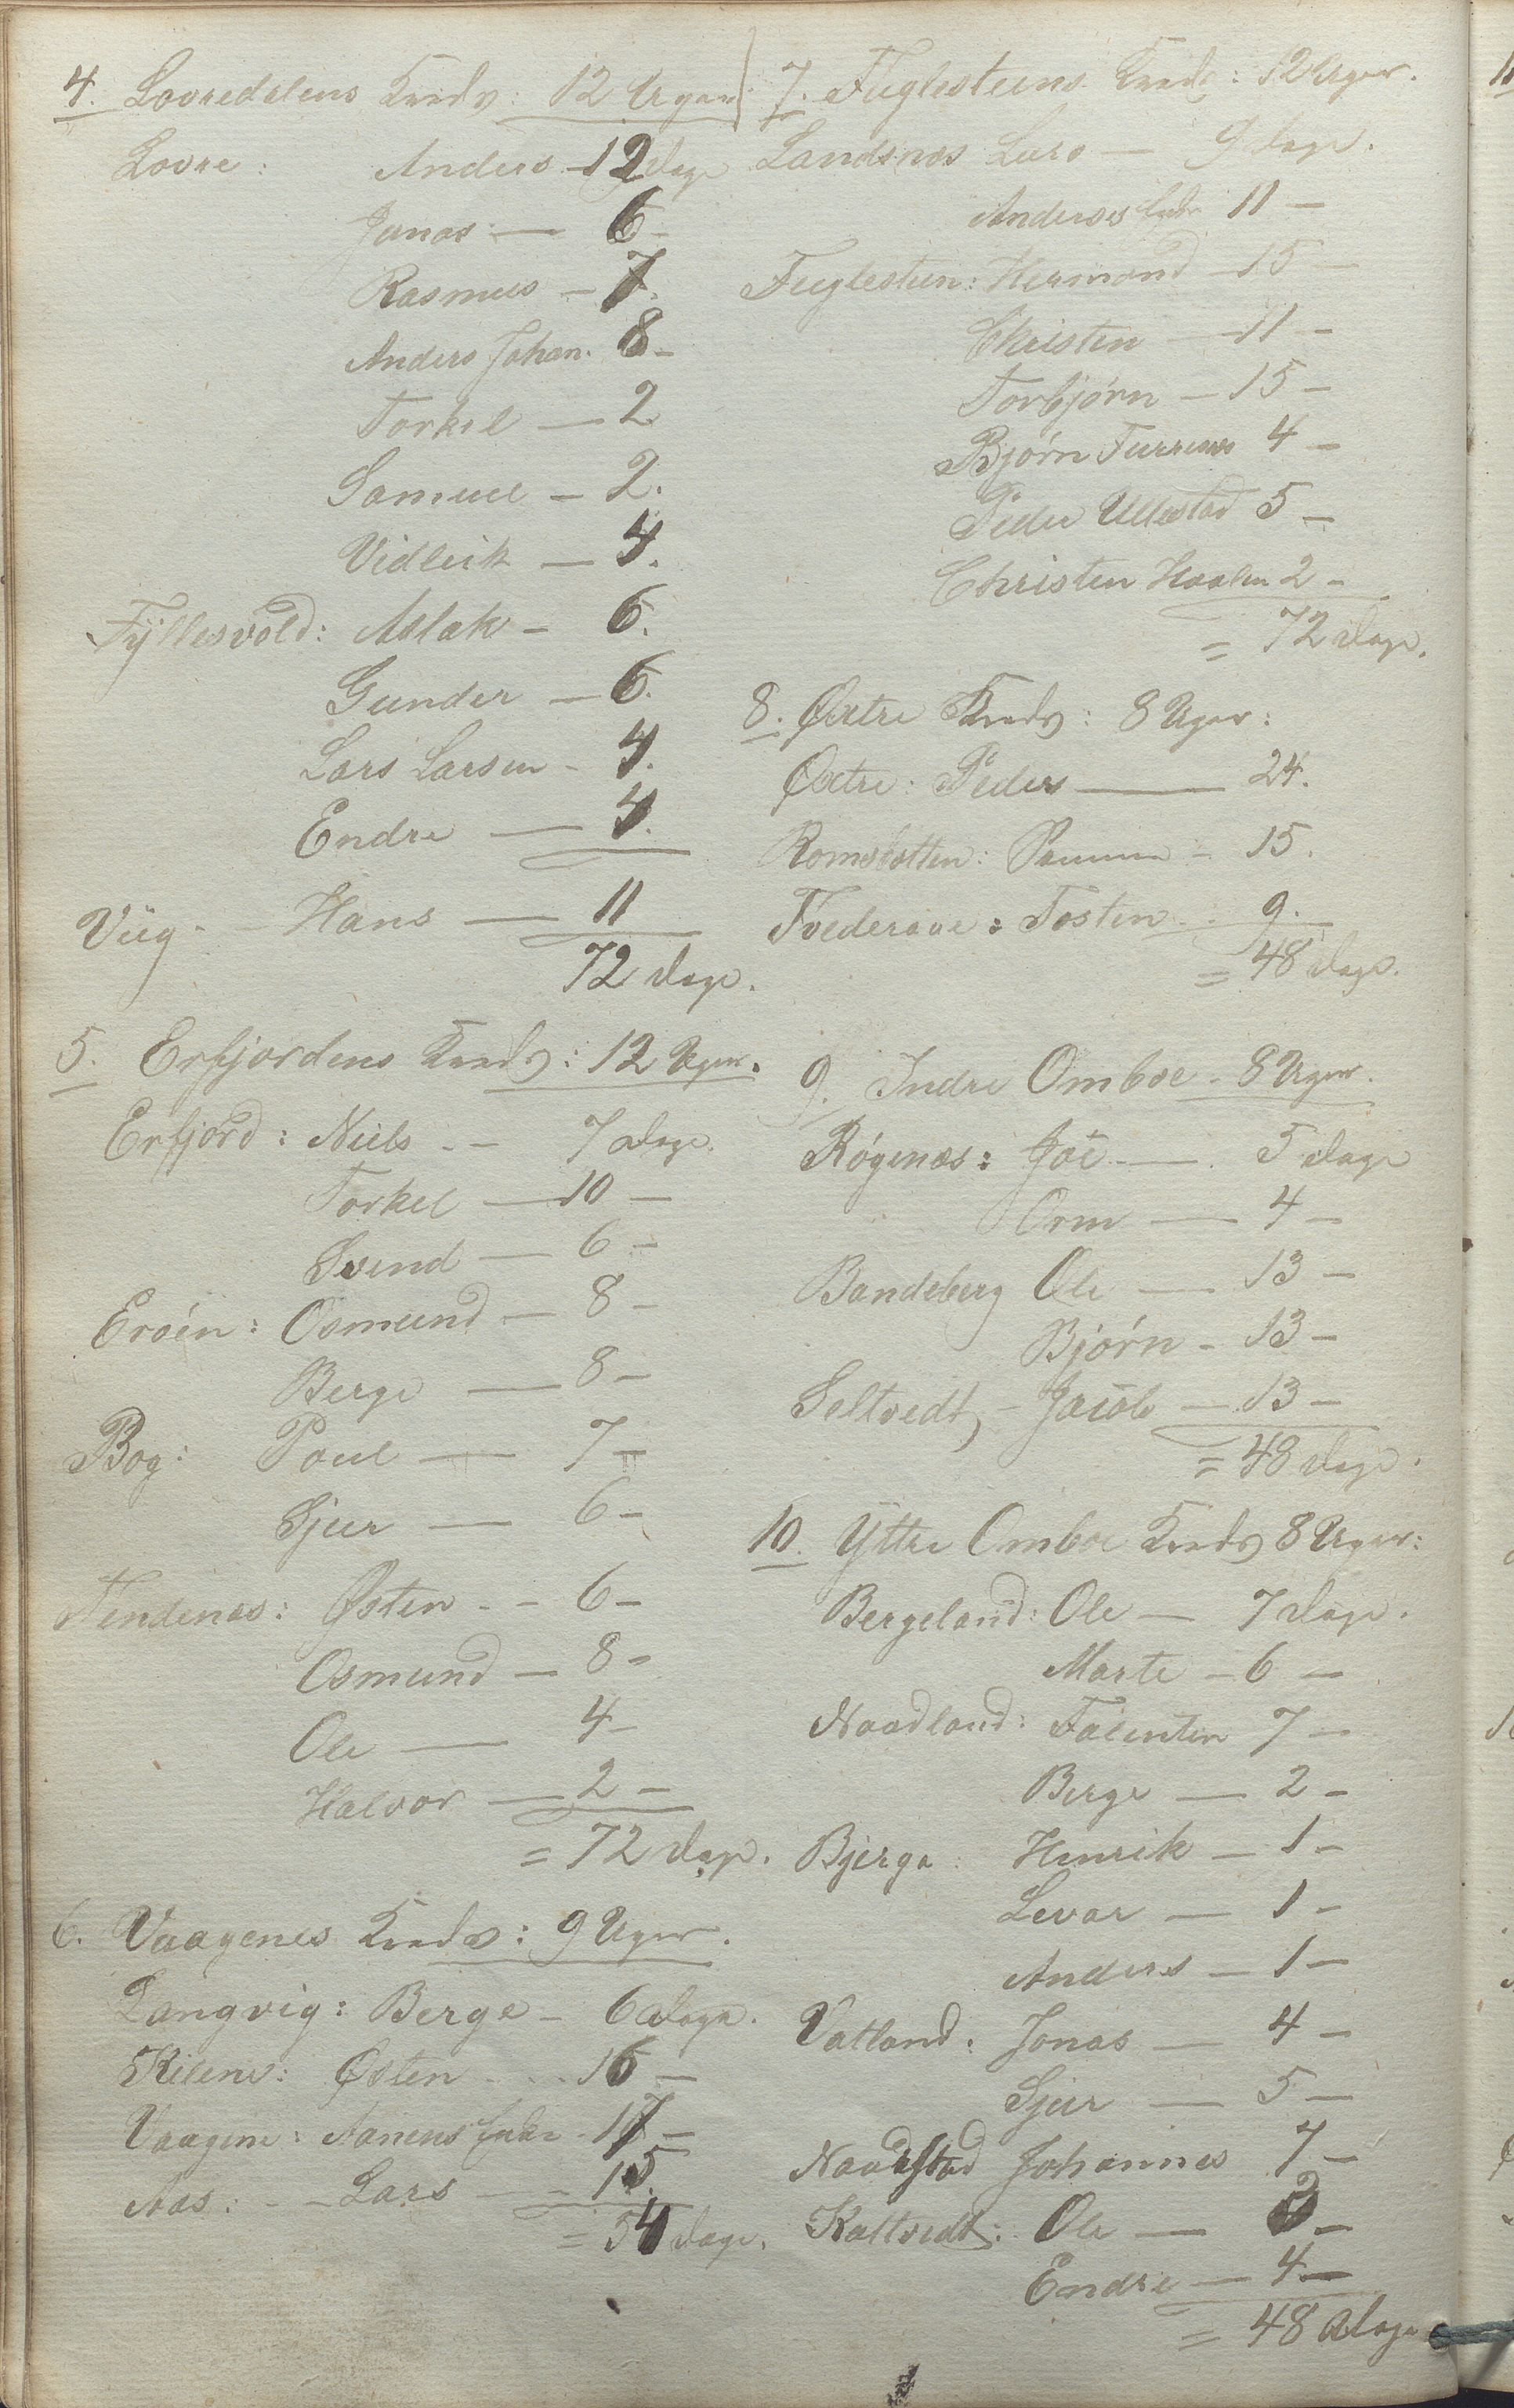 4. Lovredalens Kreds: 12 Uger
Lovre: Anders - 12 dage
Jonas - 6 -
Rasmus - 7.
Anders Johan. 8 -
Torkel - 2
Samuel - 2.
Vidleik - 4.
Fÿllesvold: Aslak - 6.
Gunder - 6.
Lars Larsen - 4.
Endre - 4.
Viig - Hans - 11
72 dage.
5. Erfjordens Kreds: 12 Uger.
Erfjord: Niels - - 7 dage.
Torkel - 10 -
Svend - 6 -
Eröen: Osmund - 8 -
Berge - 8 -
Bog: Poul - 7 -
Sjur - 6 -
Tendenes: Østen - - 6 -
Osmund - 8 -
Ole - 4 -
Halvor - 2 -
= 72 dage.
6. Vaagenes Kreds: 9 Uger.
Langvig: Berge - 6 dage.
Kilene: Østen - - 16 -
Vaagene: Aanens - 17 -
Aas: - - Lars - 15.
= 54 dage.
7. Fuglesteens Kreds: 12 Uger.
Landsnæs Lars - 9 dage.
Anders 11 -
Fuglesteen: Hermond - 15 -
Christen - 11 -
Torbjörn - 15 -
Björn 4 -
Peder Ullestad 5 -
Christen Haalen 2 -
= 72 dage.
8. Øxtre Kreds: 8 Uger:
Øxtre: Peders - 24.
Romslotten: - 15.
Tvederaae: Tosten - 9.
= 48 dage.
9. Indre Omboe - 8 Uger.
Rögenæs: Joë - 5 dage
Orm - 4 -
Bandeberg Ole - 13 -
Björn - 13 -
Seltvedt, - Jacob - 13 -
= 48 dage.
10. Yttre Omboe Kreds 8 Uger:
Bergeland: Ole - 7 dage.
Marte - 6 -
Naadland: Falenten 7 -
Berge - 2 -
Bjerga: Henrik - 1 -
Levar - 1 -
Anders - 1 -
Vatland: Jonas - 4 -
Sjur - 5 -
Naadstad Johannes 7 -
Kaltvedt: Ole - 3 -
Endre - 4 -
= 48 dage